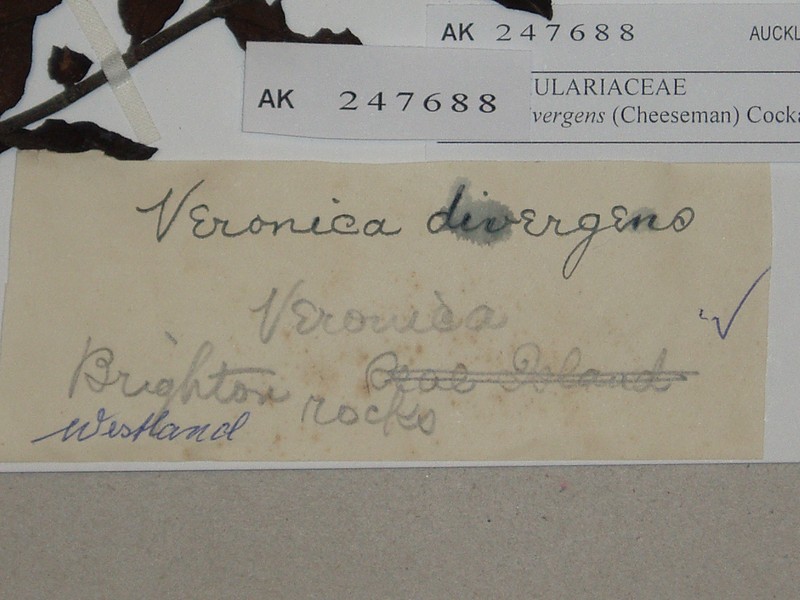 AK 247688 AUCKL
AK 247688
ULARIACEAE
vergens (Cheeseman) Cocka
Veronica divergens
Veronica
Brighton Seal Island
rocks
Westland